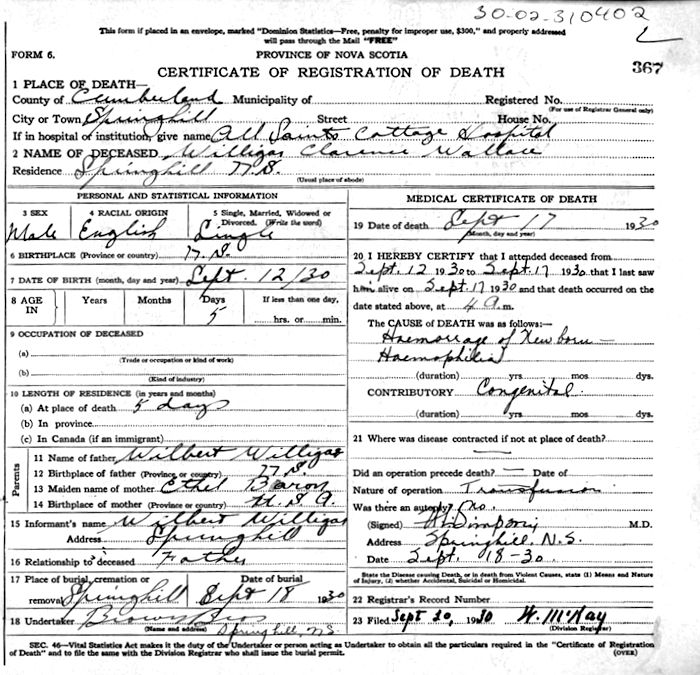 30-02-310402
L
This form if placed in an envelope, marked "Dominion Statistics—Free, penalty for improper use, $300," and properly addressed
will pass through the Mail "FREE"
FORM 6.
PROVINCE OF NOVA SCOTIA
CERTIFICATE OF REGISTRATION OF DEATH
367
1 PLACE OF DEATH—
County of Cumberland Municipality of Registered No.
(For use of Registrar General only)
City or Town Springhill Street House No.
If in hospital or institution, give name All Saints Cottage Hospital
2 NAME OF DECEASED Willigar Clarence Wallace
Residence Springhill N.S.
(Usual place of abode)
PERSONAL AND STATISTICAL INFORMATION
3 SEX 4 RACIAL ORIGIN 5 Single, Married, Widowed or
Divorced. (Write the word)
Male English Single
6 BIRTHPLACE (Province or country) N.S.
7 DATE OF BIRTH (month, day and year) Sept. 12/30
8 AGE IN Years Months Days If less than one day,
5 hrs. or min.
9 OCCUPATION OF DECEASED
(a)
(Trade or occupation or kind of work)
(b)
(Kind of industry)
10 LENGTH OF RESIDENCE (in years and months)
(a) At place of death 5 days
(b) In province
(c) In Canada (if an immigrant)
Parents
11 Name of father Wilbert Willigar
12 Birthplace of father (Province or country) N.S.
13 Maiden name of mother Ethel Baron
14 Birthplace of mother (Province or country)
15 Informant's name Wilbert Willigar
Address Springhill
16 Relationship to deceased Father
17 Place of burial, cremation or Date of burial
removal Springhill Sept 18 1930
18 Undertaker Brown Bros
(Name and address) Springhill, N.S.
MEDICAL CERTIFICATE OF DEATH
19 Date of death Sept 17 1930
(Month, day and year)
20 I HEREBY CERTIFY that I attended deceased from
Sept. 12 1930 to Sept. 17 1930 that I last saw
him alive on Sept. 17 1930 and that death occurred on the
date stated above, at 4 a.m.
The CAUSE OF DEATH was as follows:—
Haemorrage of New born —
Haemophilia
(duration) yrs mos dys.
CONTRIBUTORY Congenital
(duration) yrs mos dys.
21 Where was disease contracted if not at place of death?
—
Did an operation precede death? — Date of
Nature of operation Transfusion
Was there an autopsy? No.
(Signed) M.D.
Address Springhill, N.S.
Date Sept. 18-30.
State the Disease causing Death, or in death from Violent Causes, state (1) Means and Nature
of Injury, (2) whether Accidental, Suicidal or Homicidal.
22 Registrar's Record Number
23 Filed Sept 20, 1930 W. McKay
(Division Registrar)
SEC. 46—Vital Statistics Act makes it the duty of the Undertaker or person acting as Undertaker to obtain all the particulars required in the "Certificate of Registration
of Death" and to file the same with the Division Registrar who shall issue the burial permit. (OVER)